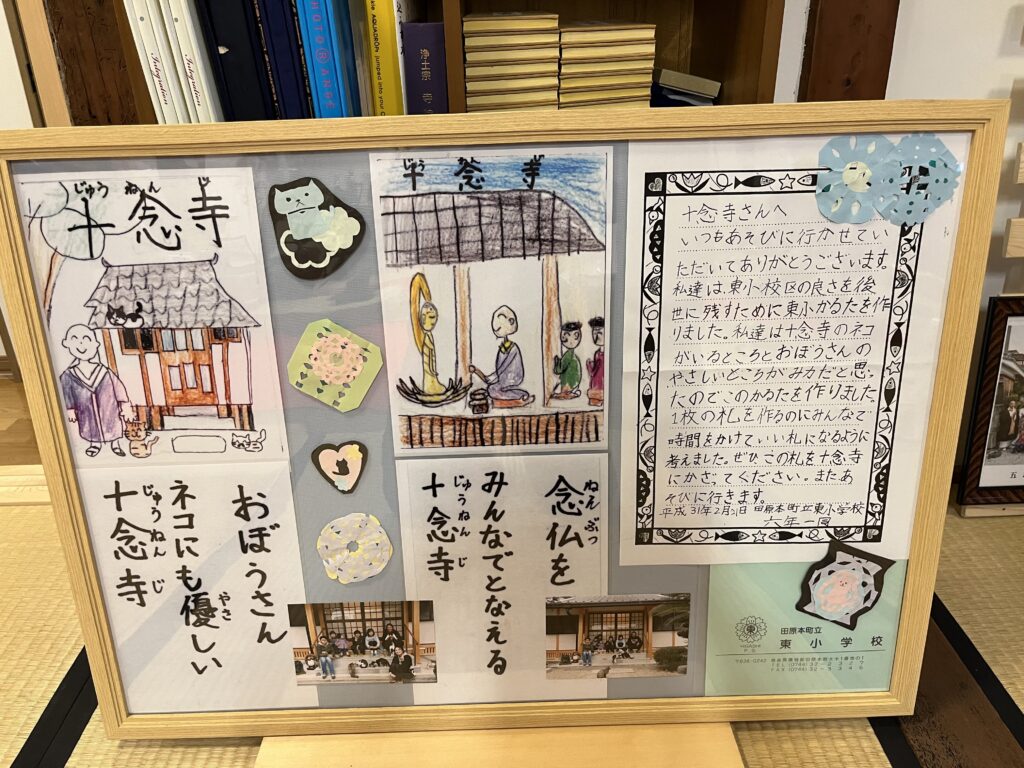 Integration
Integration
PHOTO@ANGE
AQUADROPs jumped into your
浄土宗
じゅう ねん じ
十念寺
じゅう
十念寺
十念寺さんへ
いつもあそびに行かせてい
ただいてありがとうございます。
私達は東小校区の良さを後
世に残すために東小かるたを作
りました。私達は十念寺のネコ
がいるところとおぼうさんの
やさしいところがみカだと思っ
たのでこのかるたを作りました。
1枚の札を作るのにみんなで
時間をかけて、いい札になるように
考えました。ぜひこの札を十念寺
にかざってください。またあ
そびに行きます。
平成31年2月 日 田原本町立東小学校
六年一同
おぼうさん
ネコにも優しい
やさ
十念寺
じゅうねん じ
念仏を
ねんぶつ
みんなでとなえる
十念寺
じゅうねん じ
HIGASHI
P S
田原本町立
東小学校